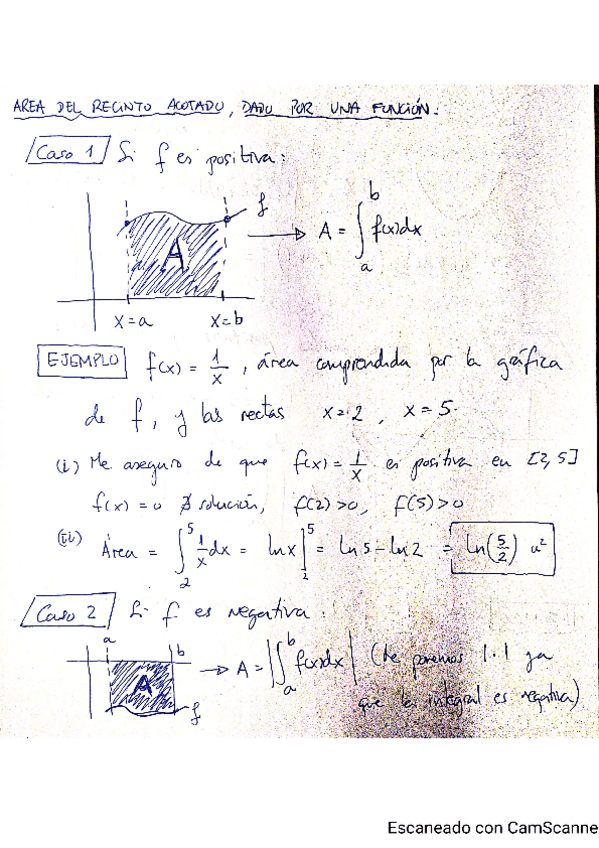 AREA DEL RECINTO ACOTADO, DADO POR UNA FUNCIÓN.
Caso 1 Si f es positiva:
f
A
A = ∫ₐᵇ f(x)dx
x=a x=b
EJEMPLO f(x) = 1/x, área comprendida por la gráfica
de f, y las rectas x=2, x=5.
(i) Me aseguro de que f(x) = 1/x es positiva en [2,5]
f(x)=0 ∄ solución, f(2)>0, f(5)>0
(ii) Área = ∫₂⁵ 1/x dx = ln x]₂⁵ = ln 5 - ln 2 = ln(5/2) u²
Caso 2 Si f es negativa:
a b
A
f
A = |∫ₐᵇ f(x)dx| (Le ponemos |·| ya
que la integral es negativa)
Escaneado con CamScanne